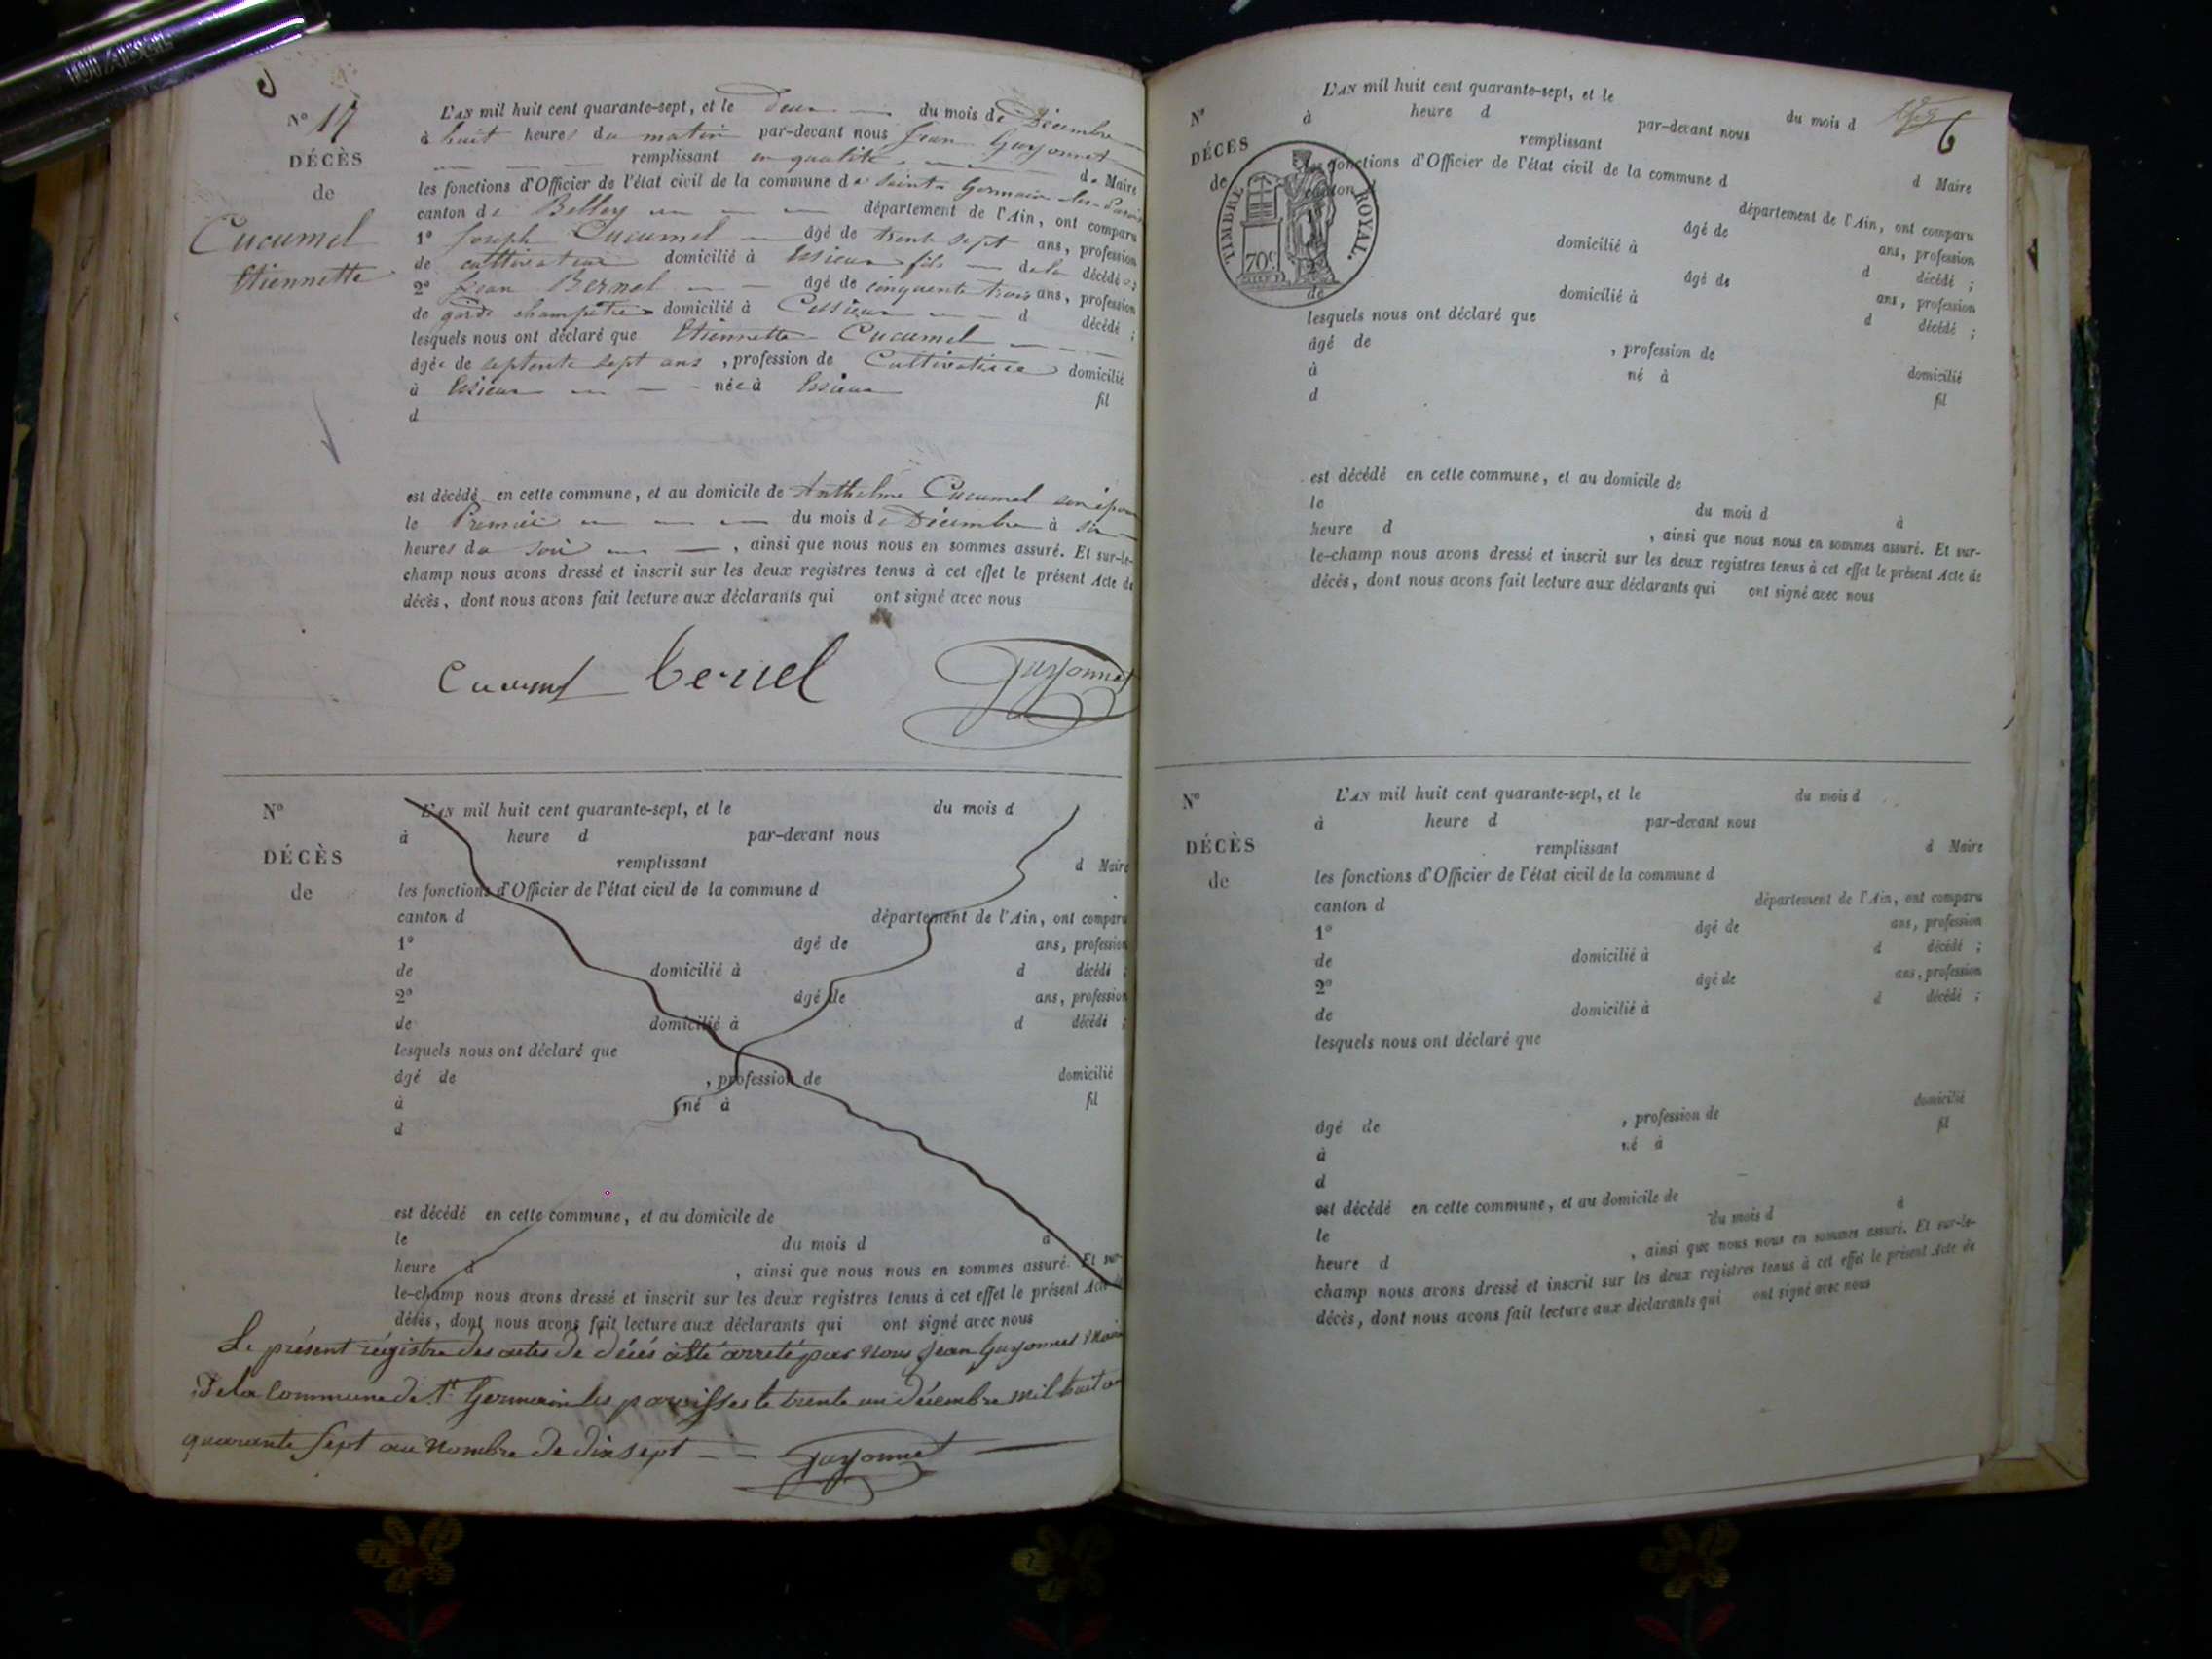 N° 17
DÉCÈS
de
Cucumel
Etiennette
L'AN mil huit cent quarante-sept, et le deux du mois de Décembre
à huit heures du matin par-devant nous Jean Guyonnet
remplissant en qualité de Maire
les fonctions d'Officier de l'état civil de la commune de Saint Germain les Parois
canton de Belley département de l'Ain, ont comparu
1° Joseph Cucumel âgé de trente sept ans, profession
de cultivateur domicilié à Essieux fils de la décédée;
2° Jean Bernel âgé de cinquante trois ans, profession
de garde champêtre domicilié à Essieux d décédé ;
lesquels nous ont déclaré que Etiennette Cucumel
âgée de septente sept ans, profession de Cultivatrice domicilié
à Essieux née à Essieux fil
d
est décédé en cette commune, et au domicile de Anthelme Cucumel son époux
le Premier du mois de Décembre à six
heures du soir, ainsi que nous nous en sommes assuré. Et sur-le-
champ nous avons dressé et inscrit sur les deux registres tenus à cet effet le présent Acte de
décès, dont nous avons fait lecture aux déclarants qui ont signé avec nous
Cucumel bernel Guyonnet
N°
DÉCÈS
de
L'AN mil huit cent quarante-sept, et le du mois d
à heure d par-devant nous
remplissant d Maire
les fonctions d'Officier de l'état civil de la commune d
canton d département de l'Ain, ont comparu
1° âgé de ans, profession
de domicilié à d décédé ;
2° âgé de ans, profession
de domicilié à d décédé ;
lesquels nous ont déclaré que
âgé de , profession de domicilié
à né à fil
d
est décédé en cette commune, et au domicile de
le du mois d à
heure d , ainsi que nous nous en sommes assuré. Et sur-
le-champ nous avons dressé et inscrit sur les deux registres tenus à cet effet le présent Acte
décès, dont nous avons fait lecture aux déclarants qui ont signé avec nous
Le présent régistre des actes de décés a été arreté par nous Jean Guyonnet Maire
De la Commune de St Germain les paroisses le trente un décembre mil huit cent
quarante sept au nombre de dix sept Guyonnet
6
N°
DÉCÈS
de
TIMBRE ROYAL.
70c
L'AN mil huit cent quarante-sept, et le du mois d
à heure d par-devant nous
remplissant d Maire
les fonctions d'Officier de l'état civil de la commune d
canton d département de l'Ain, ont comparu
âgé de ans, profession
domicilié à d décédé ;
âgé de ans, profession
de domicilié à d décédé ;
lesquels nous ont déclaré que
âgé de , profession de domicilié
à né à fil
d
est décédé en cette commune, et au domicile de
le du mois d à
heure d , ainsi que nous nous en sommes assuré. Et sur-
le-champ nous avons dressé et inscrit sur les deux registres tenus à cet effet le présent Acte de
décès, dont nous avons fait lecture aux déclarants qui ont signé avec nous
N°
DÉCÈS
de
L'AN mil huit cent quarante-sept, et le du mois d
à heure d par-devant nous
remplissant d Maire
les fonctions d'Officier de l'état civil de la commune d
canton d département de l'Ain, ont comparu
1° âgé de ans, profession
de domicilié à d décédé ;
2° âgé de ans, profession
de domicilié à d décédé ;
lesquels nous ont déclaré que
âgé de , profession de domicilié
à né à fil
d
est décédé en cette commune, et au domicile de
le du mois d à
heure d , ainsi que nous nous en sommes assuré. Et sur-le-
champ nous avons dressé et inscrit sur les deux registres tenus à cet effet le présent Acte de
décès, dont nous avons fait lecture aux déclarants qui ont signé avec nous